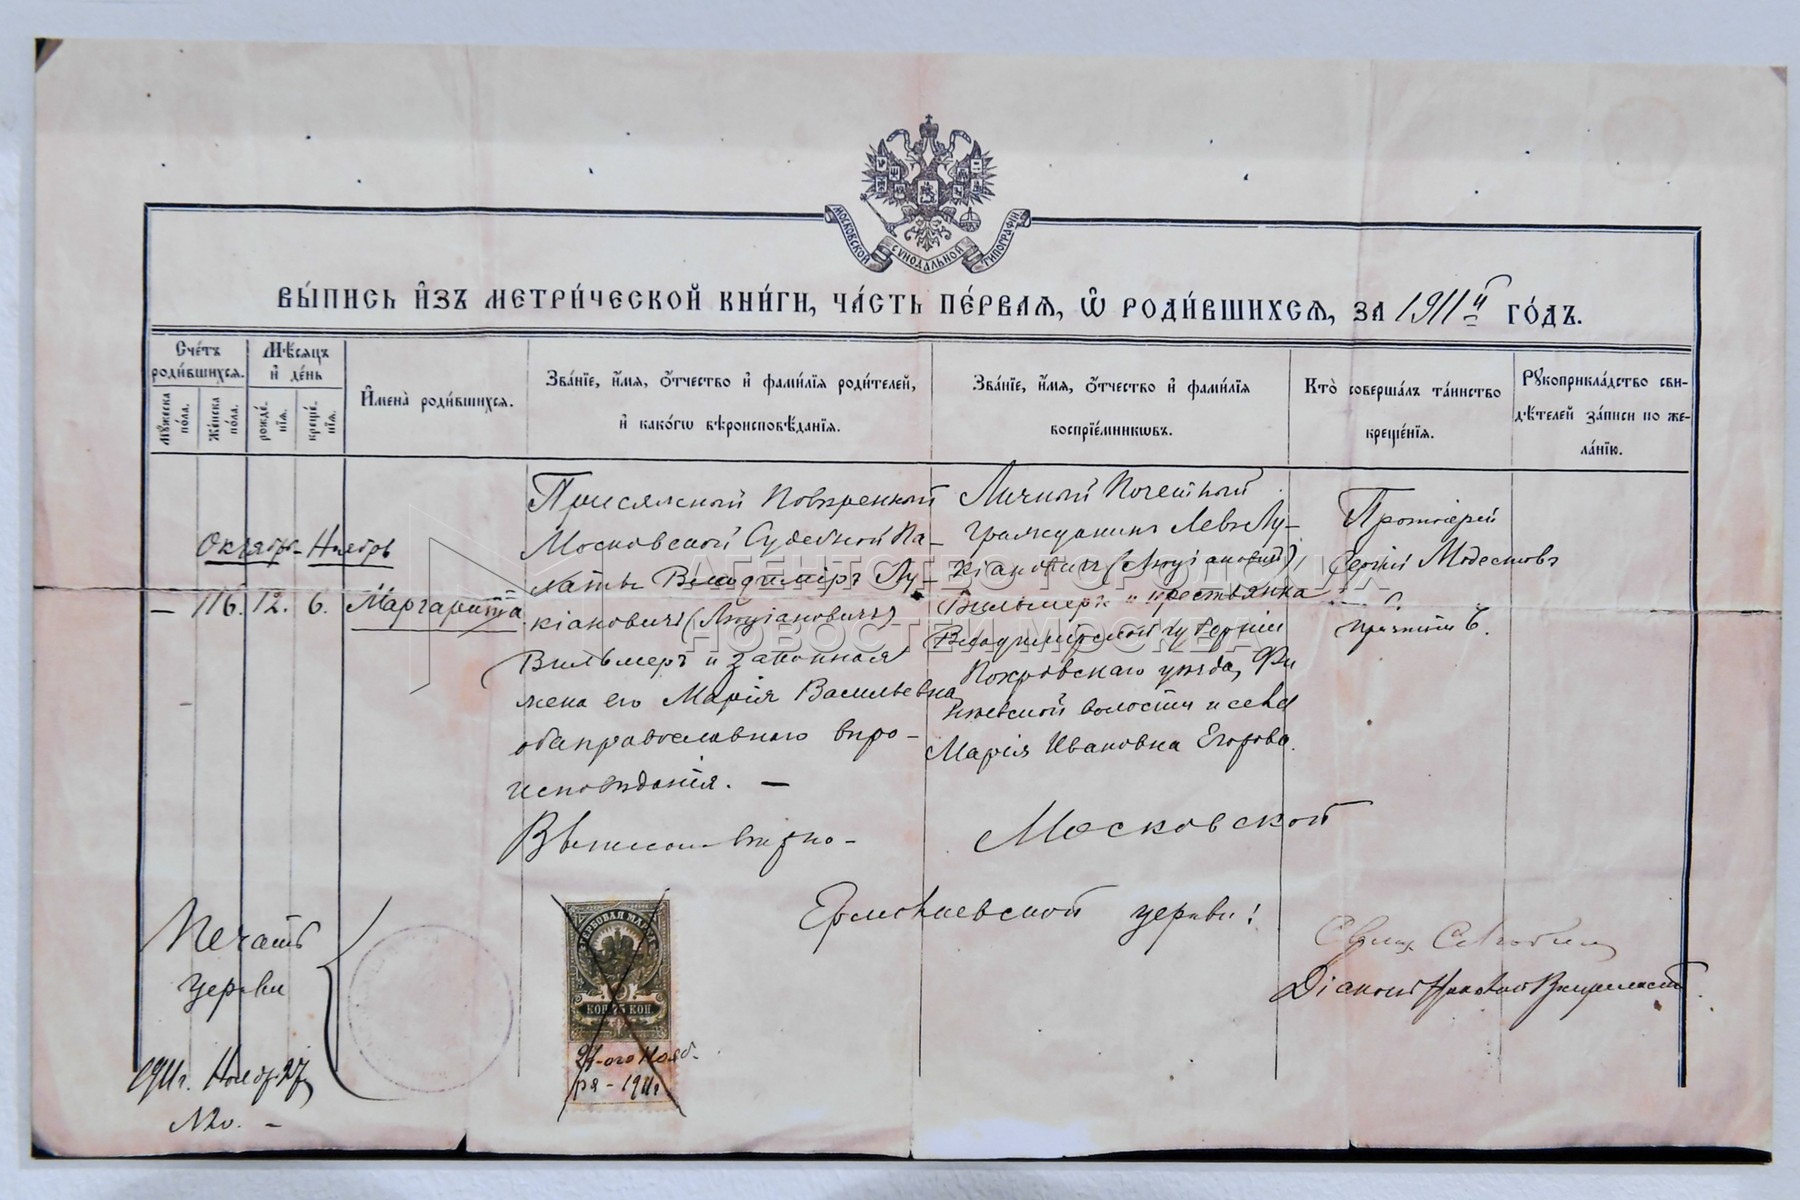 МОСКОВСКОЙ СѴНОДАЛЬНОЙ ТИПОГРАФІИ
ВЫ́ПИСЬ И҆ЗЪ МЕТРИ́ЧЕСКОЙ КНИ́ГИ, ЧА́СТЬ ПЕ́РВАѦ, Ѽ РОДИ́ВШИХСѦ, ЗА 1911й ГО́ДЪ.
Сче́тъ роди́вшихсѧ.
Мꙋ́жеска по́ла.
Же́нска по́ла.
Мѣ́сѧцъ и҆ де́нь
рожде́нїѧ.
креще́нїѧ.
И҆мена̀ роди́вшихсѧ.
Зва́нїе, и҆́мѧ, ѻ҆́тчество и҆ фами́лїѧ роди́телей,
и҆ како́гѡ вѣроисповѣ́данїѧ.
Зва́нїе, и҆́мѧ, ѻ҆́тчество и҆ фами́лїѧ
воспрїе́мникѡвъ.
Кто̀ соверша́лъ та́инство
креще́нїѧ.
Рꙋкоприкла́дство сви-
дѣ́телей за́писи по же-
ла́нїю.
Октябрь - Ноябрь
— 116. 12. 6. Маргарита
Присяжный Повѣренный
Московской Судебной Па-
латы Владимiръ Лу-
кіановичъ (Люціановичъ)
Вильмеръ и законная
жена его Марія Васильевна,
оба православнаго вѣро-
исповѣданія. —
Личный Почетный
Гражданинъ Левъ Лу-
кіановичъ (Люціановичъ)
Вильмеръ и крестьянка
Владимирской губерніи
Покровскаго уѣзда,
волости и села
Марія Ивановна Егорова.
Протоіерей
Сергій Модестовъ
съ
причтомъ.
Московской
Ермолаевской церкви:
Діаконъ
Печать
церкви
1911г. Нояб. 27
ГЕРБОВАЯ МАРКА
КОП. 75 КОП.
27-ого Нояб-
ря - 1911г
АГЕНТСТВО ГОРОДСКИХ
НОВОСТЕЙ МОСКВА